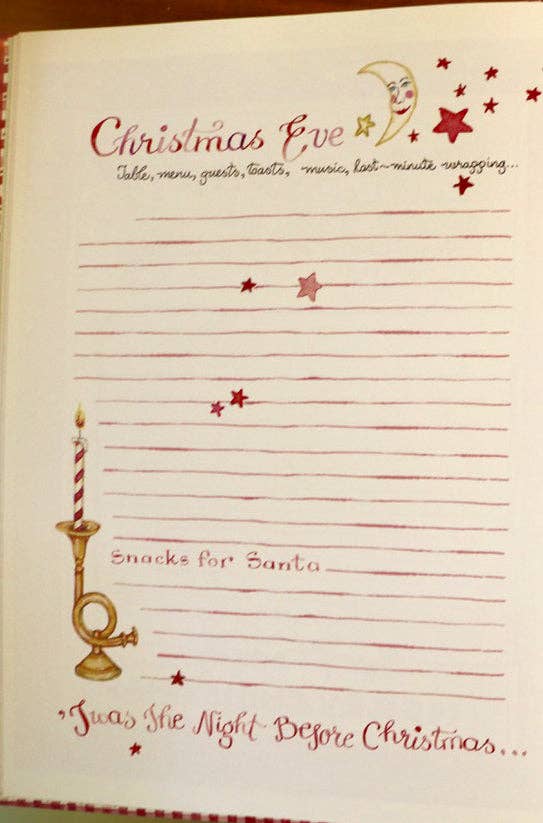 Christmas Eve
Table, menu, guests, toasts, music, last-minute wrapping...
Snacks for Santa
'Twas The Night Before Christmas...